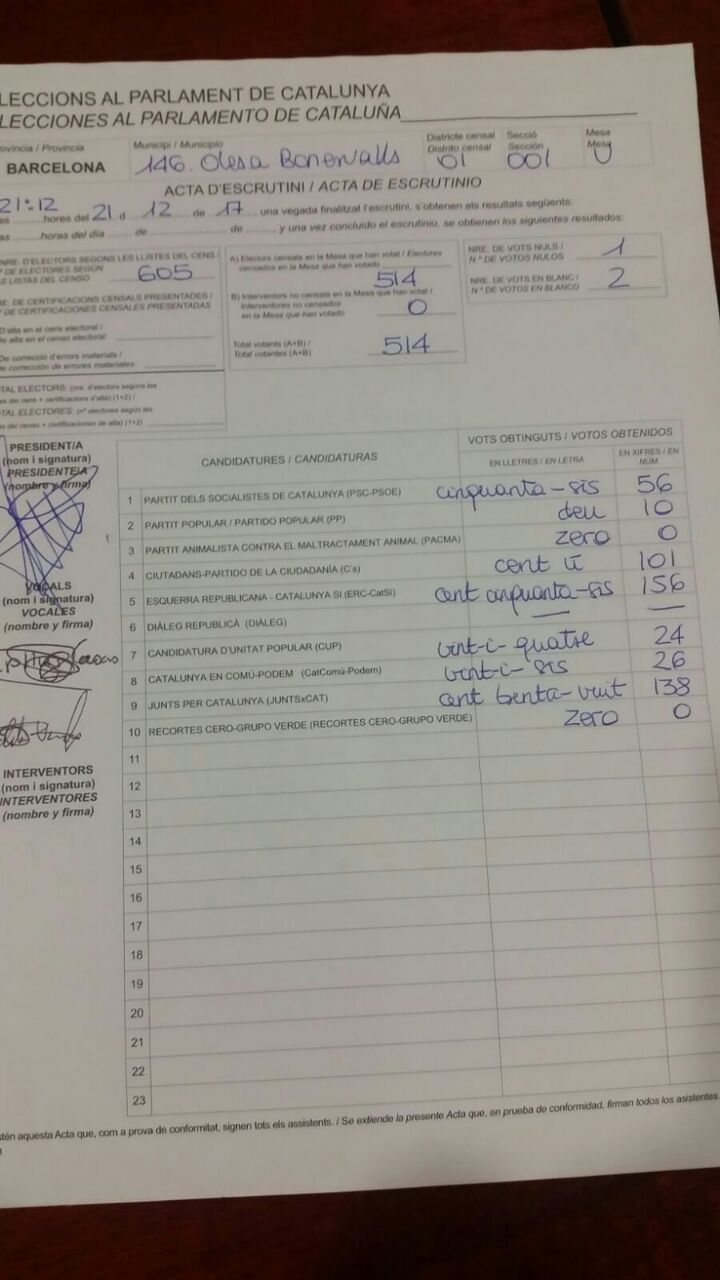 LECCIONS AL PARLAMENT DE CATALUNYA
LECCIONES AL PARLAMENTO DE CATALUÑA
ovíncia / Provincia
BARCELONA
Municipi / Municipio
146. Olesa Bonesvalls
Districte censal
Distrito censal
01
Secció
Sección
001
Mesa
Mesa
U
ACTA D'ESCRUTINI / ACTA DE ESCRUTINIO
21:12 hores del 21 d 12 de 17, una vegada finalitzat l'escrutini, s'obtenen els resultats següents:
as horas del día de de y una vez concluido el escrutinio, se obtienen los siguientes resultados:
NRE. D'ELECTORS SEGONS LES LLISTES DEL CENS /
º DE ELECTORES SEGÚN
S LISTAS DEL CENSO 605
E. DE CERTIFICACIONS CENSALS PRESENTADES /
º DE CERTIFICACIONES CENSALES PRESENTADAS
D'alta en el cens electoral /
de alta en el censo electoral:
De correcció d'errors materials /
De corrección de errores materiales:
TAL ELECTORS: (nre. d'electors segons les
es del cens + certificacions d'alta) (1+2) /
TAL ELECTORES: (nº electores según las
as del censo + certificaciones de alta) (1+2)
A) Electors censats en la Mesa que han votat / Electores
censados en la Mesa que han votado 514
B) Interventors no censats en la Mesa que han votat /
Interventores no censados
en la Mesa que han votado 0
Total votants (A+B) /
Total votantes (A+B) 514
NRE. DE VOTS NULS /
N.º DE VOTOS NULOS 1
NRE. DE VOTS EN BLANC /
N.º DE VOTOS EN BLANCO 2
PRESIDENT/A
(nom i signatura)
PRESIDENTE/A
(nombre y firma)
VOCALS
(nom i signatura)
VOCALES
(nombre y firma)
INTERVENTORS
(nom i signatura)
INTERVENTORES
(nombre y firma)
CANDIDATURES / CANDIDATURAS
VOTS OBTINGUTS / VOTOS OBTENIDOS
EN LLETRES / EN LETRA
EN XIFRES / EN NÚM.
1 PARTIT DELS SOCIALISTES DE CATALUNYA (PSC-PSOE) cinquanta-sis 56
2 PARTIT POPULAR / PARTIDO POPULAR (PP) deu 10
3 PARTIT ANIMALISTA CONTRA EL MALTRACTAMENT ANIMAL (PACMA) zero 0
4 CIUTADANS-PARTIDO DE LA CIUDADANÍA (C's) cent u 101
5 ESQUERRA REPUBLICANA - CATALUNYA SI (ERC-CatSí) cent cinquanta-sis 156
6 DIÀLEG REPUBLICÀ (DIÀLEG) — —
7 CANDIDATURA D'UNITAT POPULAR (CUP) vint-i-quatre 24
8 CATALUNYA EN COMÚ-PODEM (CatComú-Podem) vint-i-sis 26
9 JUNTS PER CATALUNYA (JUNTSxCAT) cent trenta-vuit 138
10 RECORTES CERO-GRUPO VERDE (RECORTES CERO-GRUPO VERDE) zero 0
11
12
13
14
15
16
17
18
19
20
21
22
23
stén aquesta Acta que, com a prova de conformitat, signen tots els assistents. / Se extiende la presente Acta que, en prueba de conformidad, firman todos los asistentes.